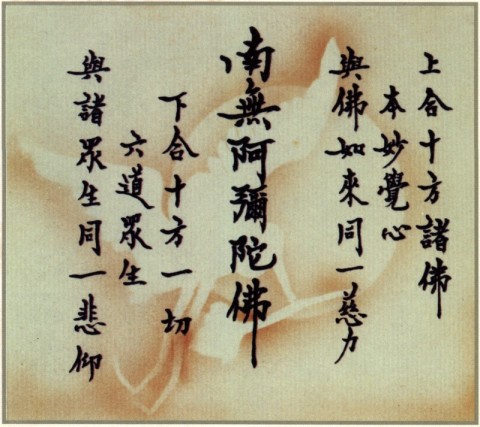 上合十方諸佛
本妙覺心
與佛如來同一慈力
南無阿彌陀佛
下合十方一切
六道眾生
與諸眾生同一悲仰